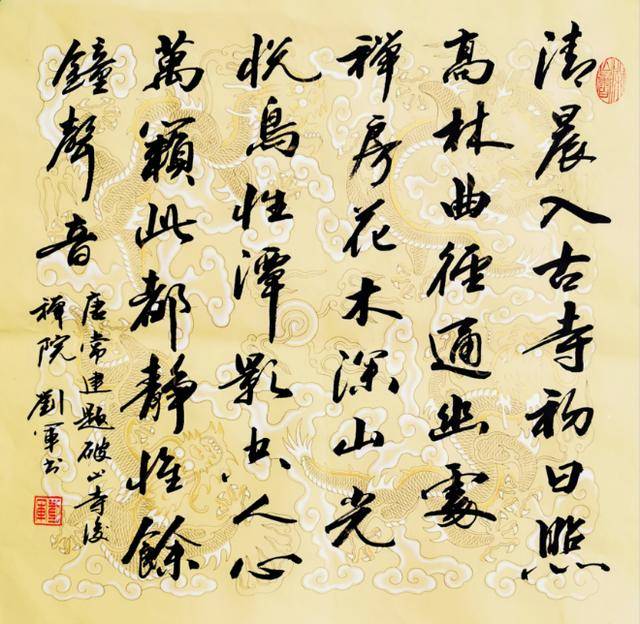 清晨入古寺初日照
高林曲徑通幽處
禪房花木深山光
悅鳥性潭影空人心
萬籟此都靜惟餘
鐘聲音
唐常建題破山寺後
禪院劉軍書
劉軍